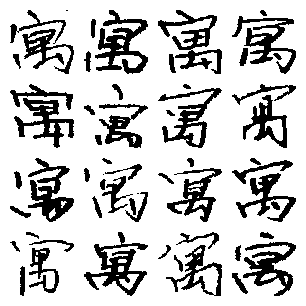 寓寓寓寓
寓寓寓寓
寓寓寓寓
寓寓寓寓